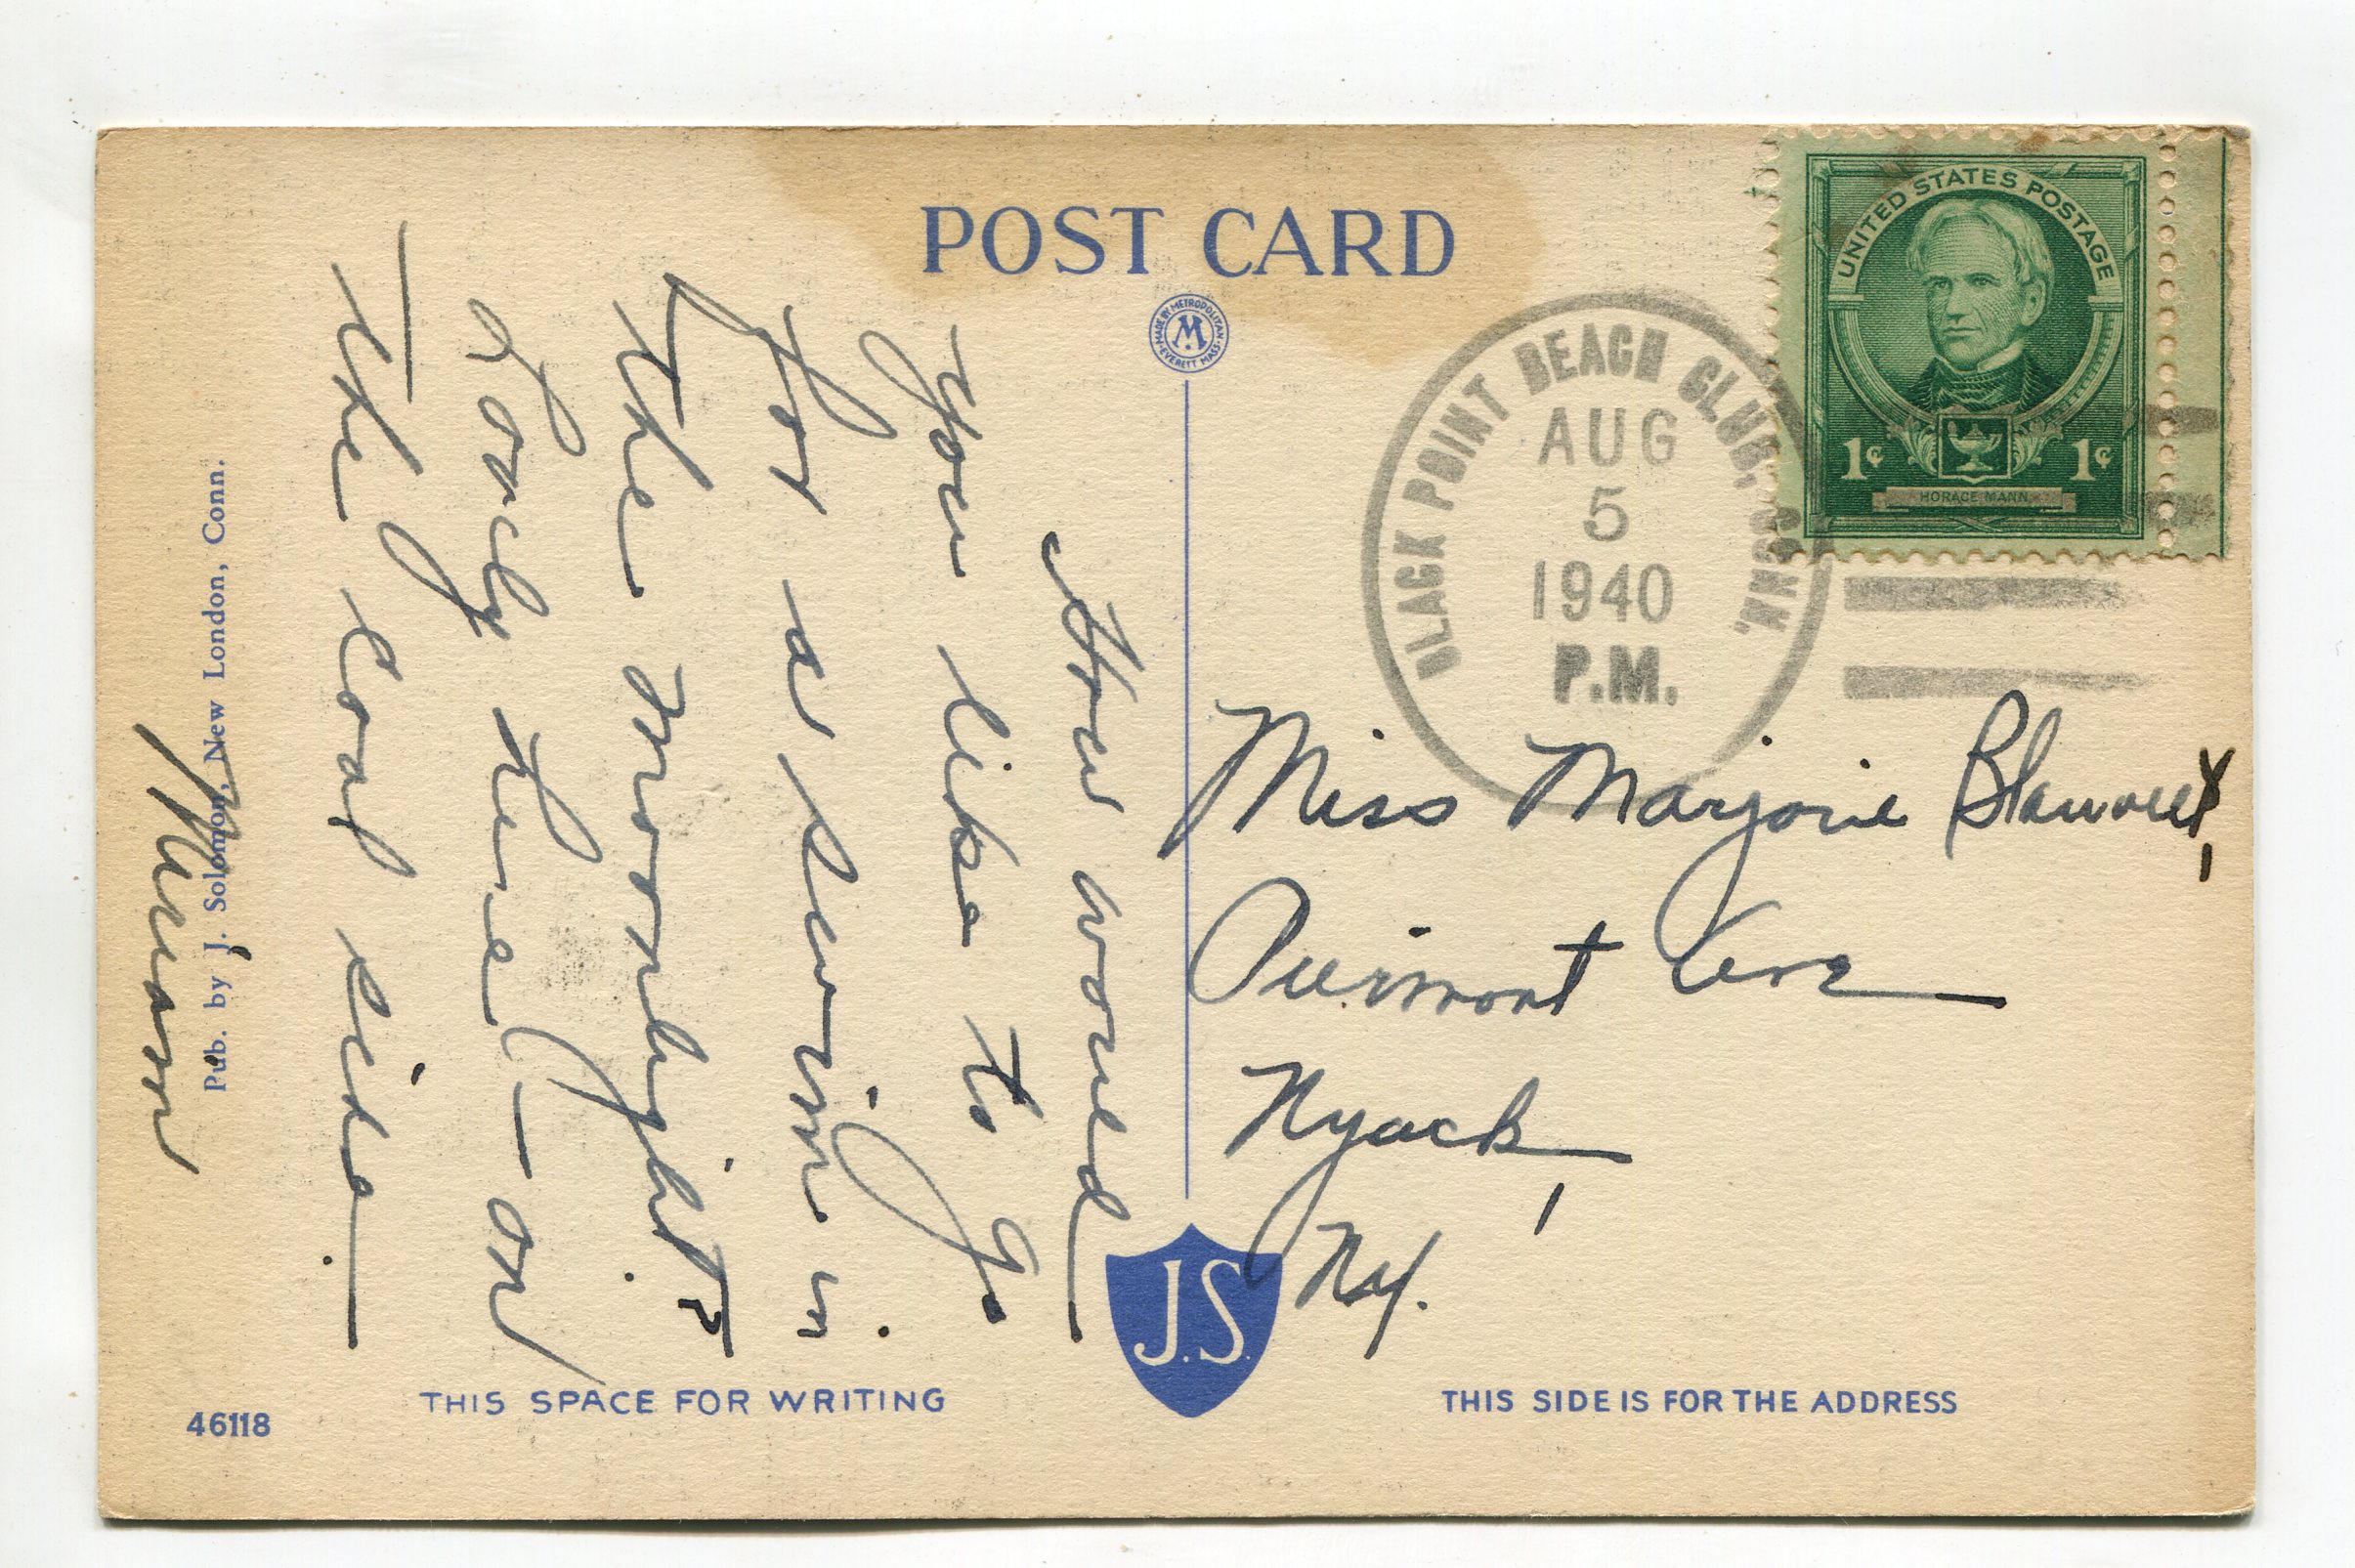 POST CARD
MADE BY METROPOLITAN
M
EVERETT MASS.
UNITED STATES POSTAGE
1¢ 1¢
HORACE MANN
BLACK POINT BEACH CLUB, CONN.
AUG
5
1940
P.M.
How would
you like to go
for a swim in
the moonlight?
Lovely here - on
the cool side.
Marion
Pub. by J. Solomon, New London, Conn.
Miss Marjorie Blauvelt
Piermont Ave
Nyack,
N.Y.
J.S.
THIS SPACE FOR WRITING
THIS SIDE IS FOR THE ADDRESS
46118